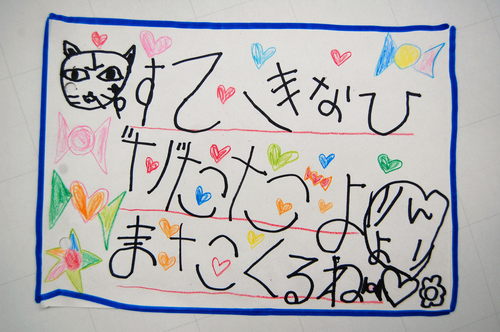 すてきなひ
たよ
またくるね
りんより